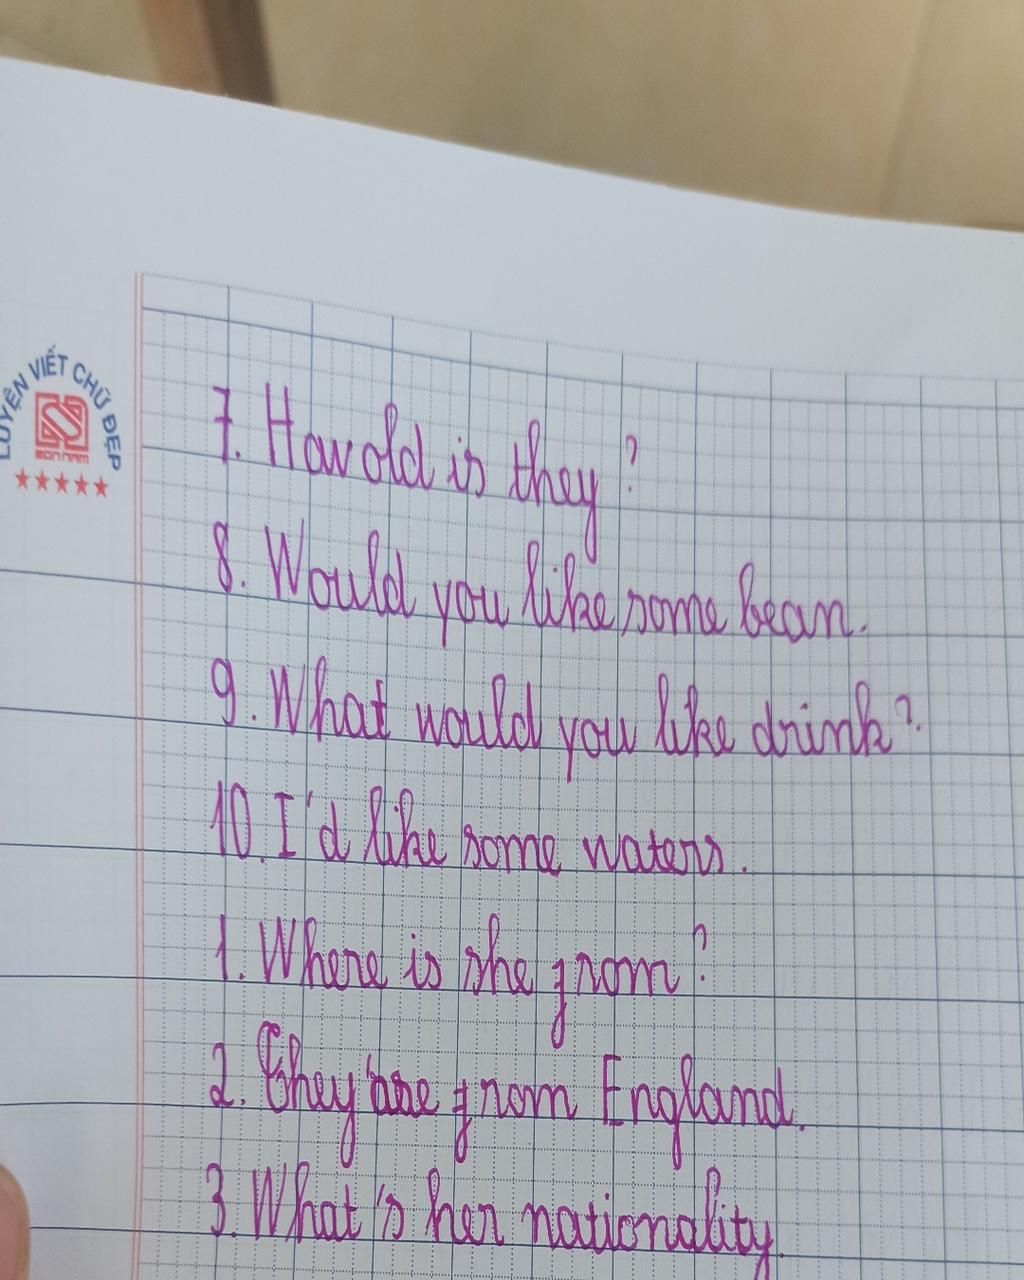 LUYỆN VIẾT CHỮ ĐẸP
HỒNG HÀ
7. How old is they?
8. Would you like some bean.
9. What would you like drink?
10. I'd like some waters.
1. Where is she from?
2. They're from England.
3. What's her nationality.